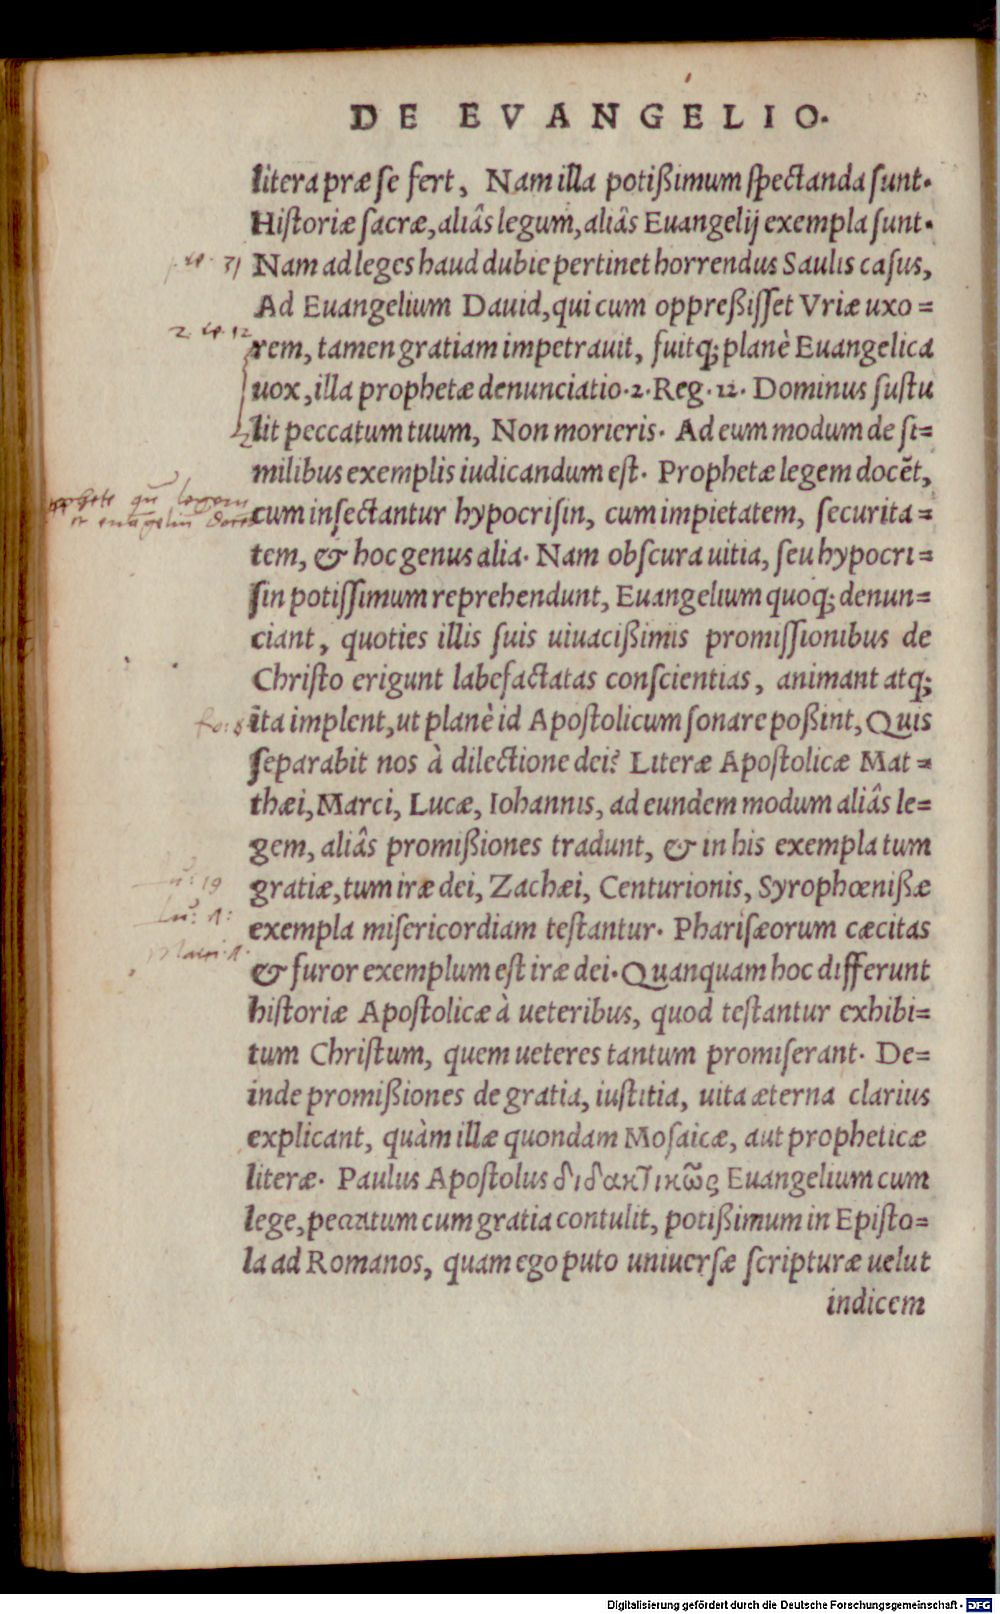 DE EVANGELIO.
litera præ se fert, Nam illa potißimum spectanda sunt.
Historiæ sacræ, aliâs legum, aliâs Euangelij exempla sunt.
Nam ad leges haud dubie pertinet horrendus Saulis casus,
Ad Euangelium Dauid, qui cum oppreßisset Vriæ uxo=
rem, tamen gratiam impetrauit, fuitq; planè Euangelica
uox, illa prophetæ denunciatio. 2. Reg. 12. Dominus sustu
lit peccatum tuum, Non morieris. Ad eum modum de si=
milibus exemplis iudicandum est. Prophetæ legem docẽt,
cum insectantur hypocrisin, cum impietatem, securita=
tem, & hoc genus alia. Nam obscura uitia, seu hypocri=
sin potissimum reprehendunt, Euangelium quoq; denun=
ciant, quoties illis suis uiuacißimis promissionibus de
Christo erigunt labefactatas conscientias, animant atq;
ita implent, ut planè id Apostolicum sonare poßint, Quis
separabit nos à dilectione dei? Literæ Apostolicæ Mat=
thæi, Marci, Lucæ, Iohannis, ad eundem modum aliâs le=
gem, aliâs promißiones tradunt, & in his exempla tum
gratiæ, tum iræ dei, Zachæi, Centurionis, Syrophœnißæ
exempla misericordiam testantur. Pharisæorum cæcitas
& furor exemplum est iræ dei. Quanquam hoc differunt
historiæ Apostolicæ à ueteribus, quod testantur exhibi=
tum Christum, quem ueteres tantum promiserant. De=
inde promißiones de gratia, iustitia, uita æterna clarius
explicant, quàm illæ quondam Mosaicæ, aut propheticæ
literæ. Paulus Apostolus διδακτικῶς Euangelium cum
lege, peccatum cum gratia contulit, potißimum in Episto=
la ad Romanos, quam ego puto uniuersæ scripturæ uelut
indicem
31
2. 12
legem
et
19
Digitalisierung gefördert durch die Deutsche Forschungsgemeinschaft - DFG